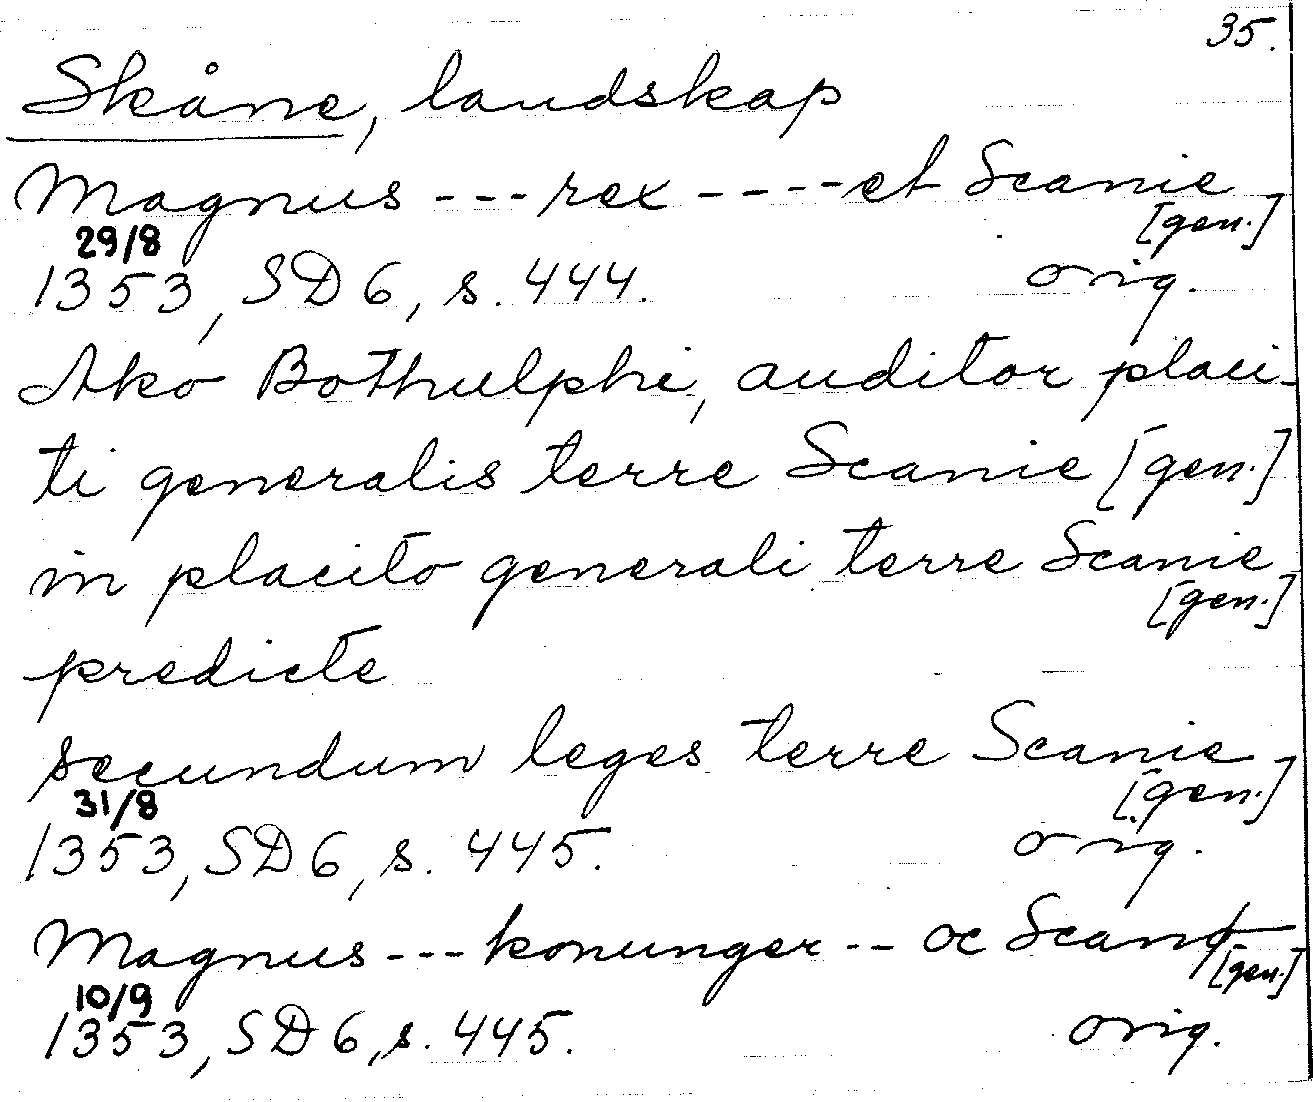 35.
Skåne, landskap
Magnus --- rex ---- et Scanie
[gen.]
29/8
1353, SD 6, s. 444. orig.
Ako Bothulphi, auditor placi-
ti generalis terre Scanie [gen.]
in placito generali terre Scanie
[gen.]
predicte
secundum leges terre Scanie
[gen.]
31/8
1353, SD 6, s. 445. orig.
Magnus --- konunger -- oc
[gen.]
10/9
1353, SD 6, s. 445. orig.